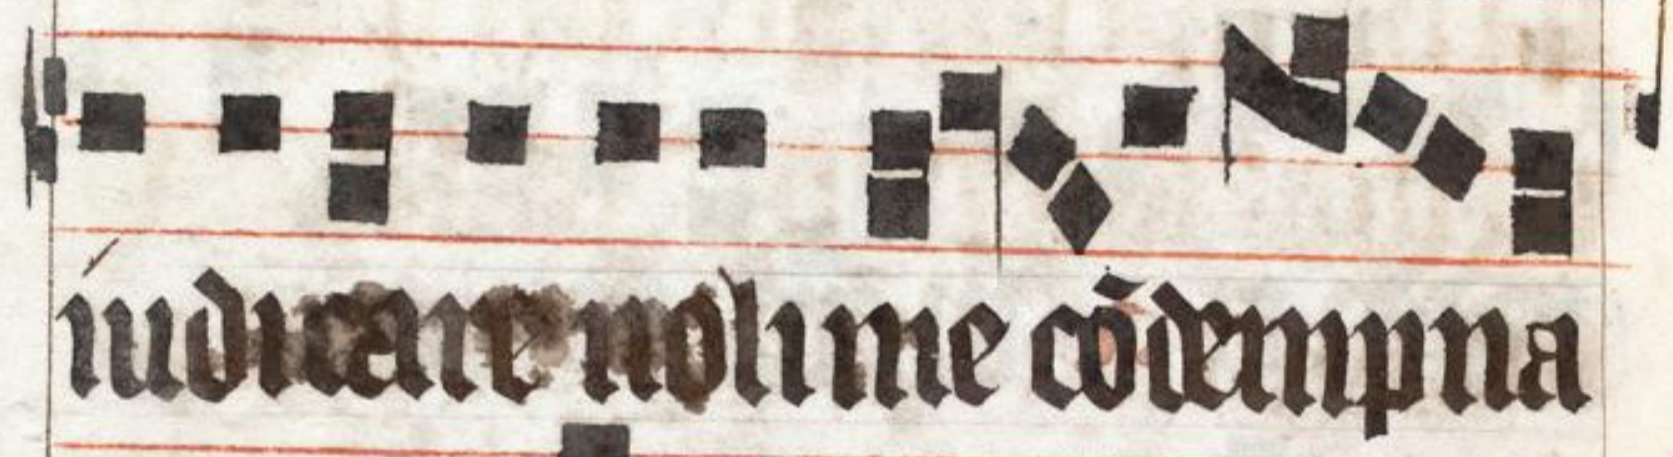 iudicare noli me cõdempna